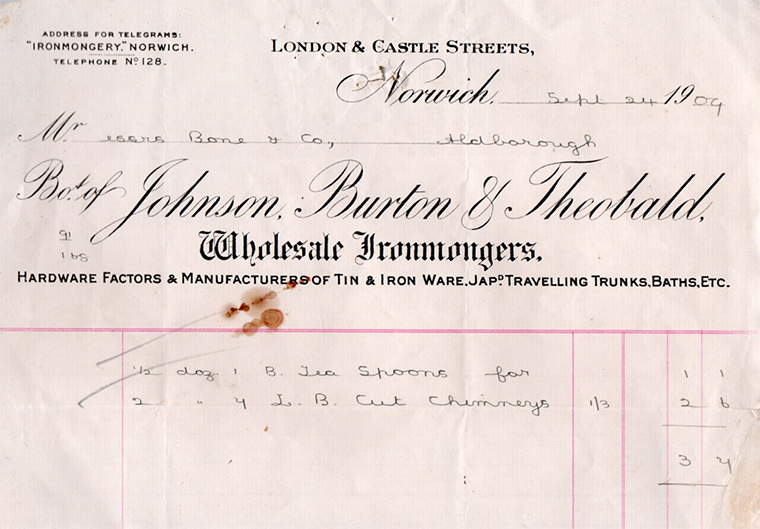 ADDRESS FOR TELEGRAMS:
"IRONMONGERY," NORWICH.
TELEPHONE No 128.
LONDON & CASTLE STREETS,
Norwich, Sept 24 1909
Mr essrs Bone & Co, Aldborough
Bot. of Johnson, Burton & Theobald,
91
Wholesale Ironmongers.
HARDWARE FACTORS & MANUFACTURERS OF TIN & IRON WARE, JAPD TRAVELLING TRUNKS, BATHS, ETC.
1/2 doz 1 B. Tea Spoons for 1 1
2 " 4 L. B. Cut Chimneys 1/3 2 6
3 7